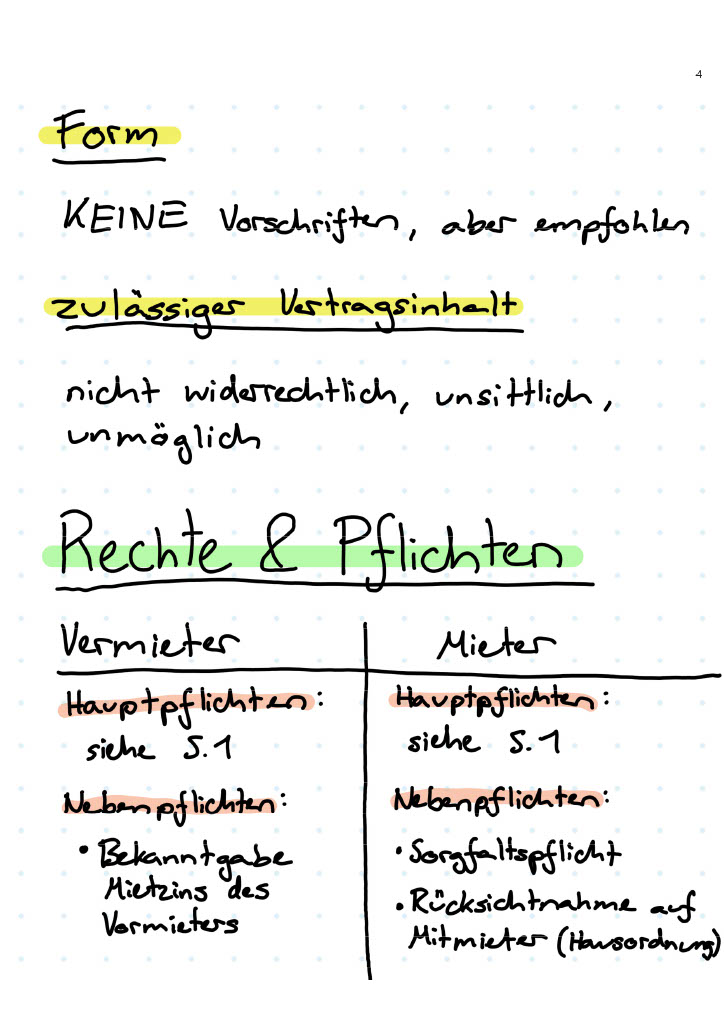 4
Form
KEINE Vorschriften, aber empfohlen
zulässiger Vertragsinhalt
nicht widerrechtlich, unsittlich,
unmöglich
Rechte & Pflichten
Vermieter
Hauptpflichten:
siehe S.1
Nebenpflichten:
• Bekanntgabe
Mietzins des
Vormieters
Mieter
Hauptpflichten:
siehe S.1
Nebenpflichten:
• Sorgfaltspflicht
• Rücksichtnahme auf
Mitmieter (Hausordnung)